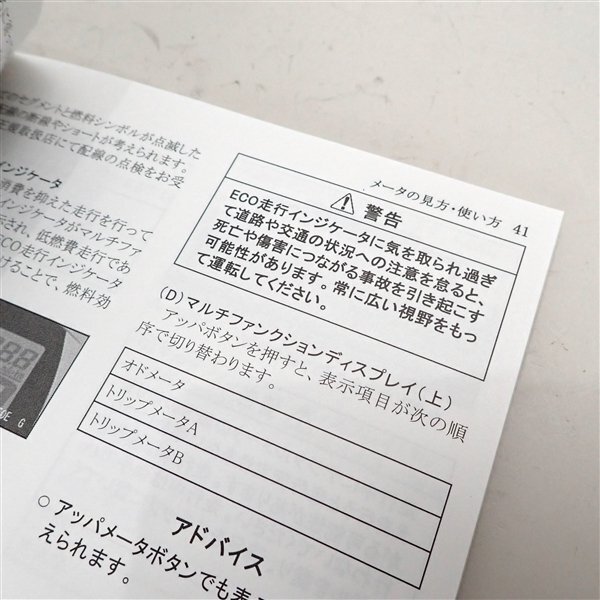 メータの見方・使い方 41
てのセグメントと燃料シンボルが点滅した
線の断線やショートが考えられます。
正規取扱店にて配線の点検をお受
インジケータ
消費を抑えた走行を行って
インジケータがマルチファ
示され、低燃費走行であ
ECO走行インジケータ
けることで、燃料効
警告
ECO走行インジケータに気を取られ過ぎ
て道路や交通の状況への注意を怠ると、
死亡や傷害につながる事故を引き起こす
可能性があります。常に広い視野をもっ
て運転してください。
(D) マルチファンクションディスプレイ(上)
アッパボタンを押すと、表示項目が次の順
序で切り替わります。
オドメータ
トリップメータA
トリップメータB
アドバイス
○ アッパメータボタンでも表
えられます。